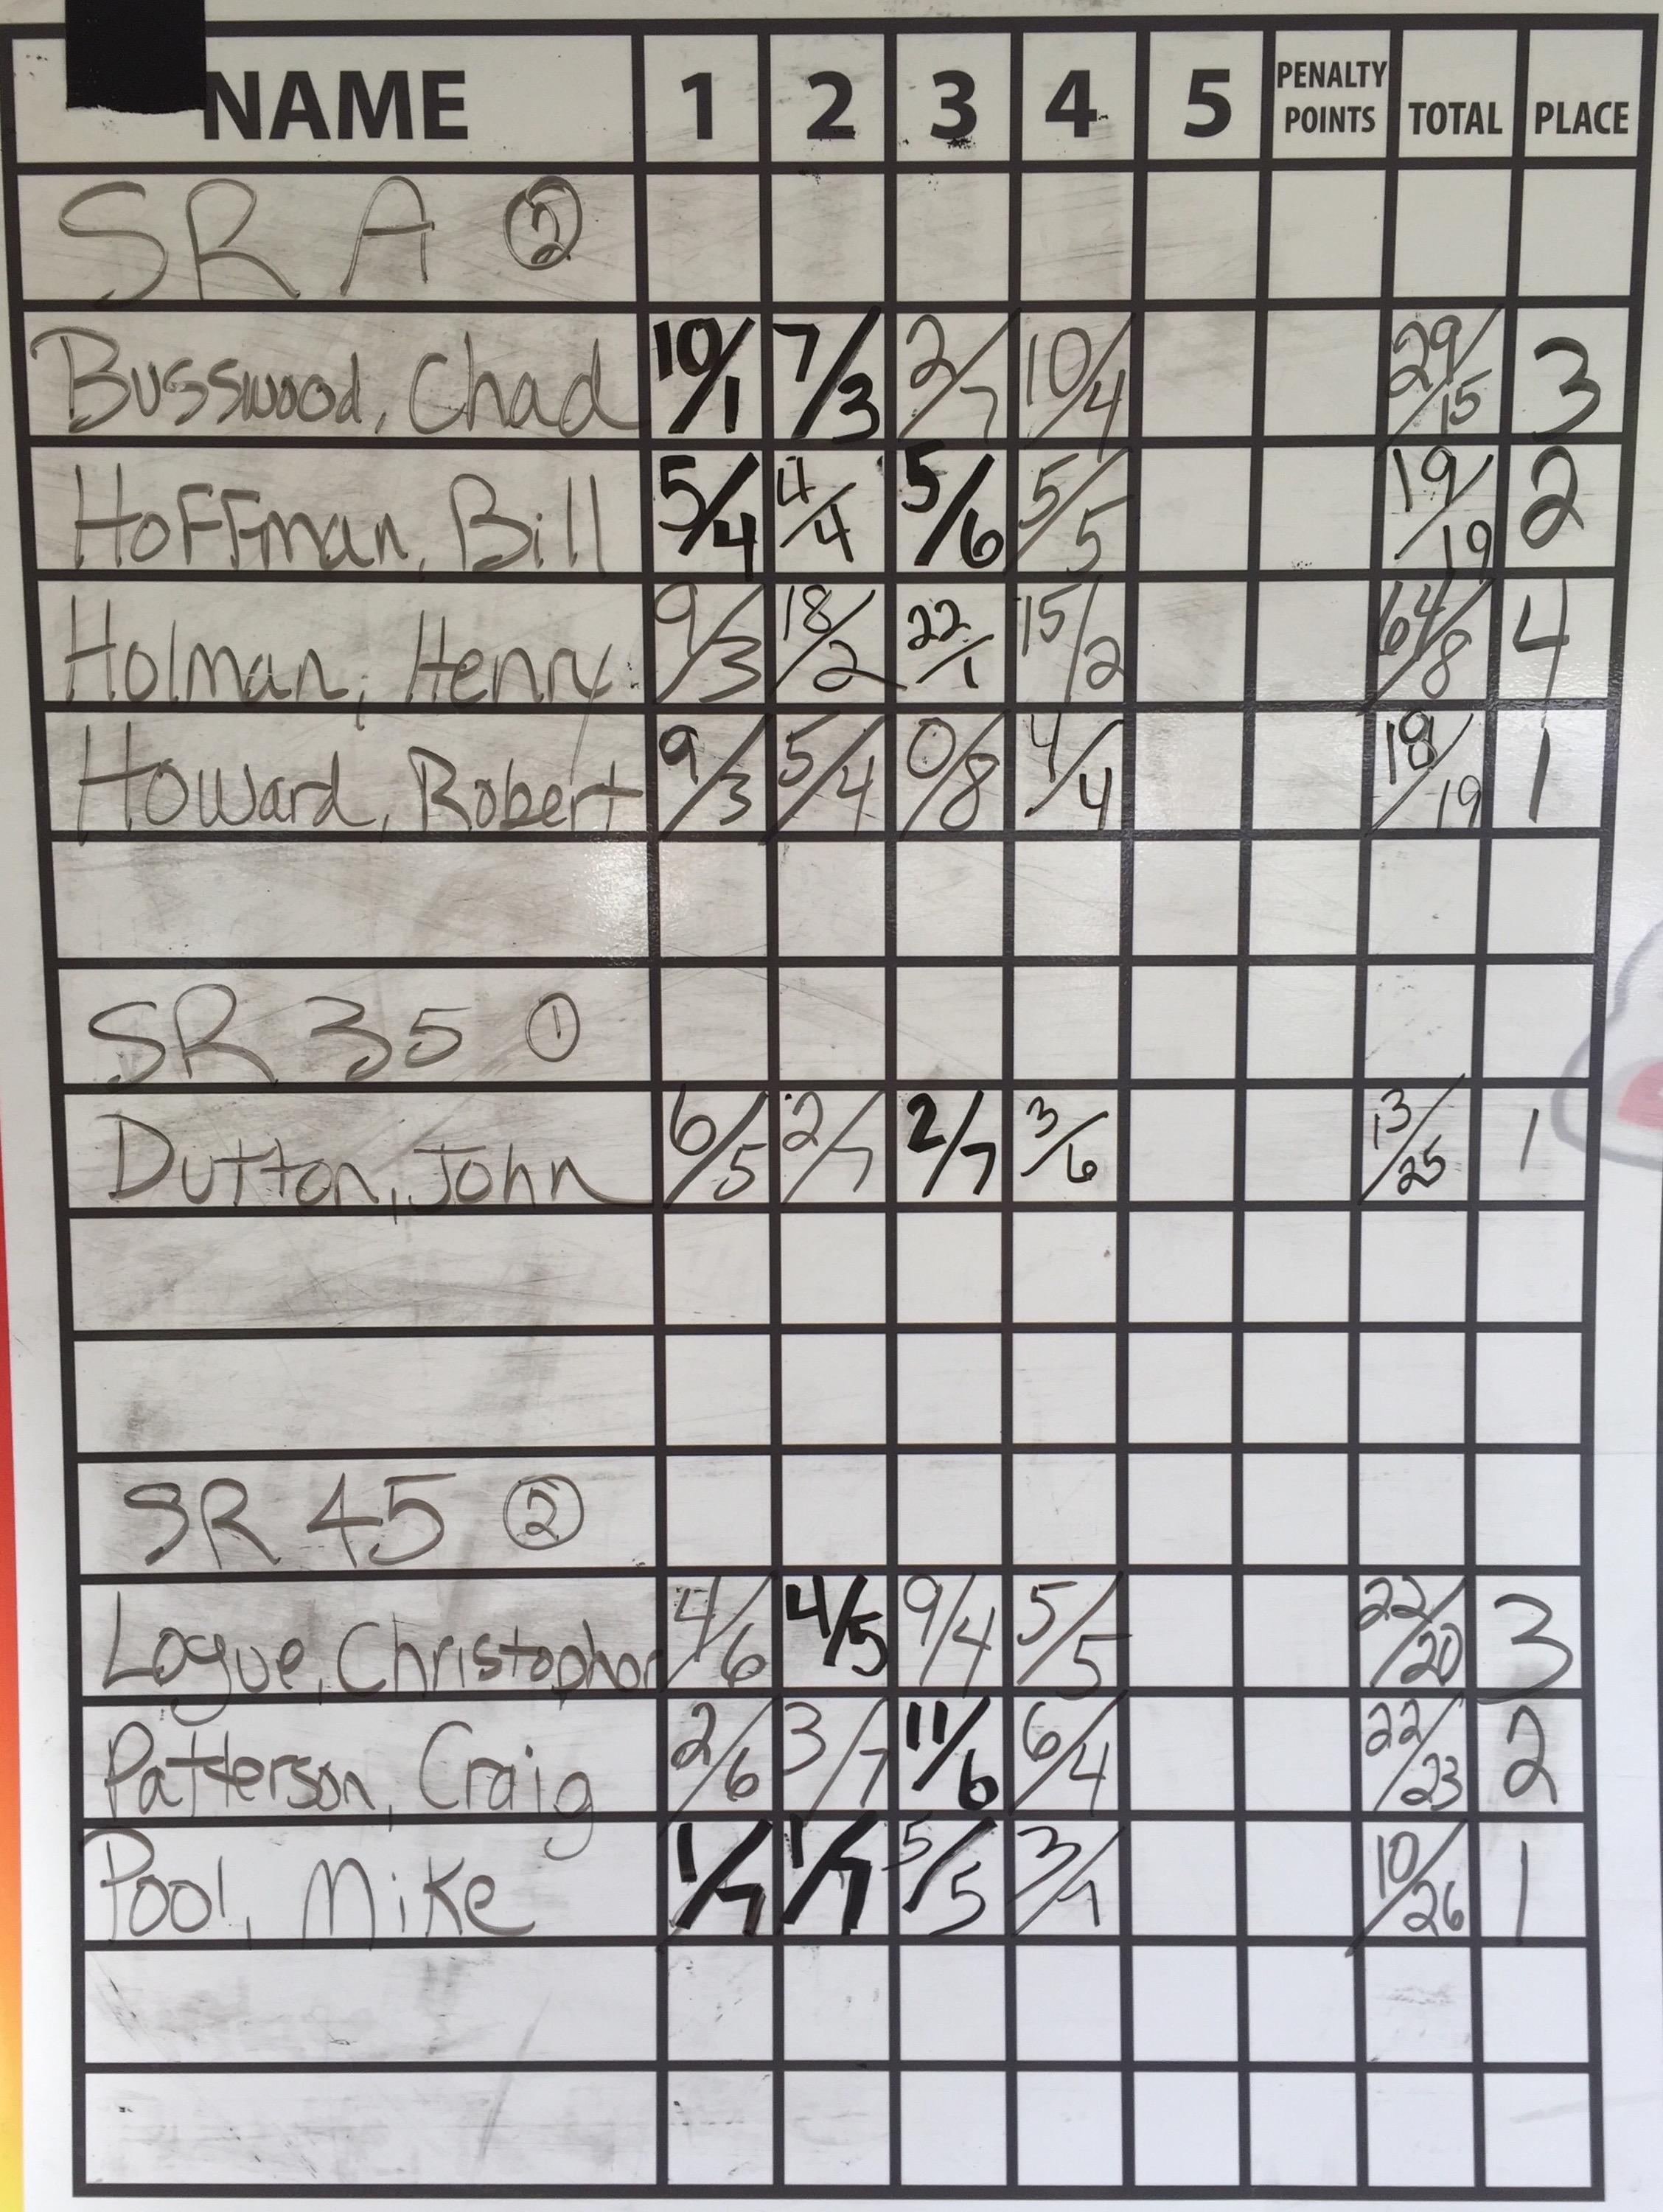 NAME 1 2 3 4 5 PENALTY POINTS TOTAL PLACE
SR A ②
Busswood, Chad 10/1 7/3 2/7 10/4 29/15 3
Hoffman, Bill 5/4 4/4 5/6 5/5 19/19 2
Holman, Henry 9/3 18/2 22/1 15/2 64/8 4
Howard, Robert 9/3 5/4 0/8 4/4 18/19 1
SR 35 ①
Dutton, John 6/5 2/7 2/7 3/6 13/25 1
SR 45 ②
Logue, Christophor 4/6 4/5 9/4 5/5 22/20 3
Patterson, Craig 2/6 3/7 11/6 6/4 22/23 2
Pool, Mike 1/7 1/7 5/5 3/7 10/26 1